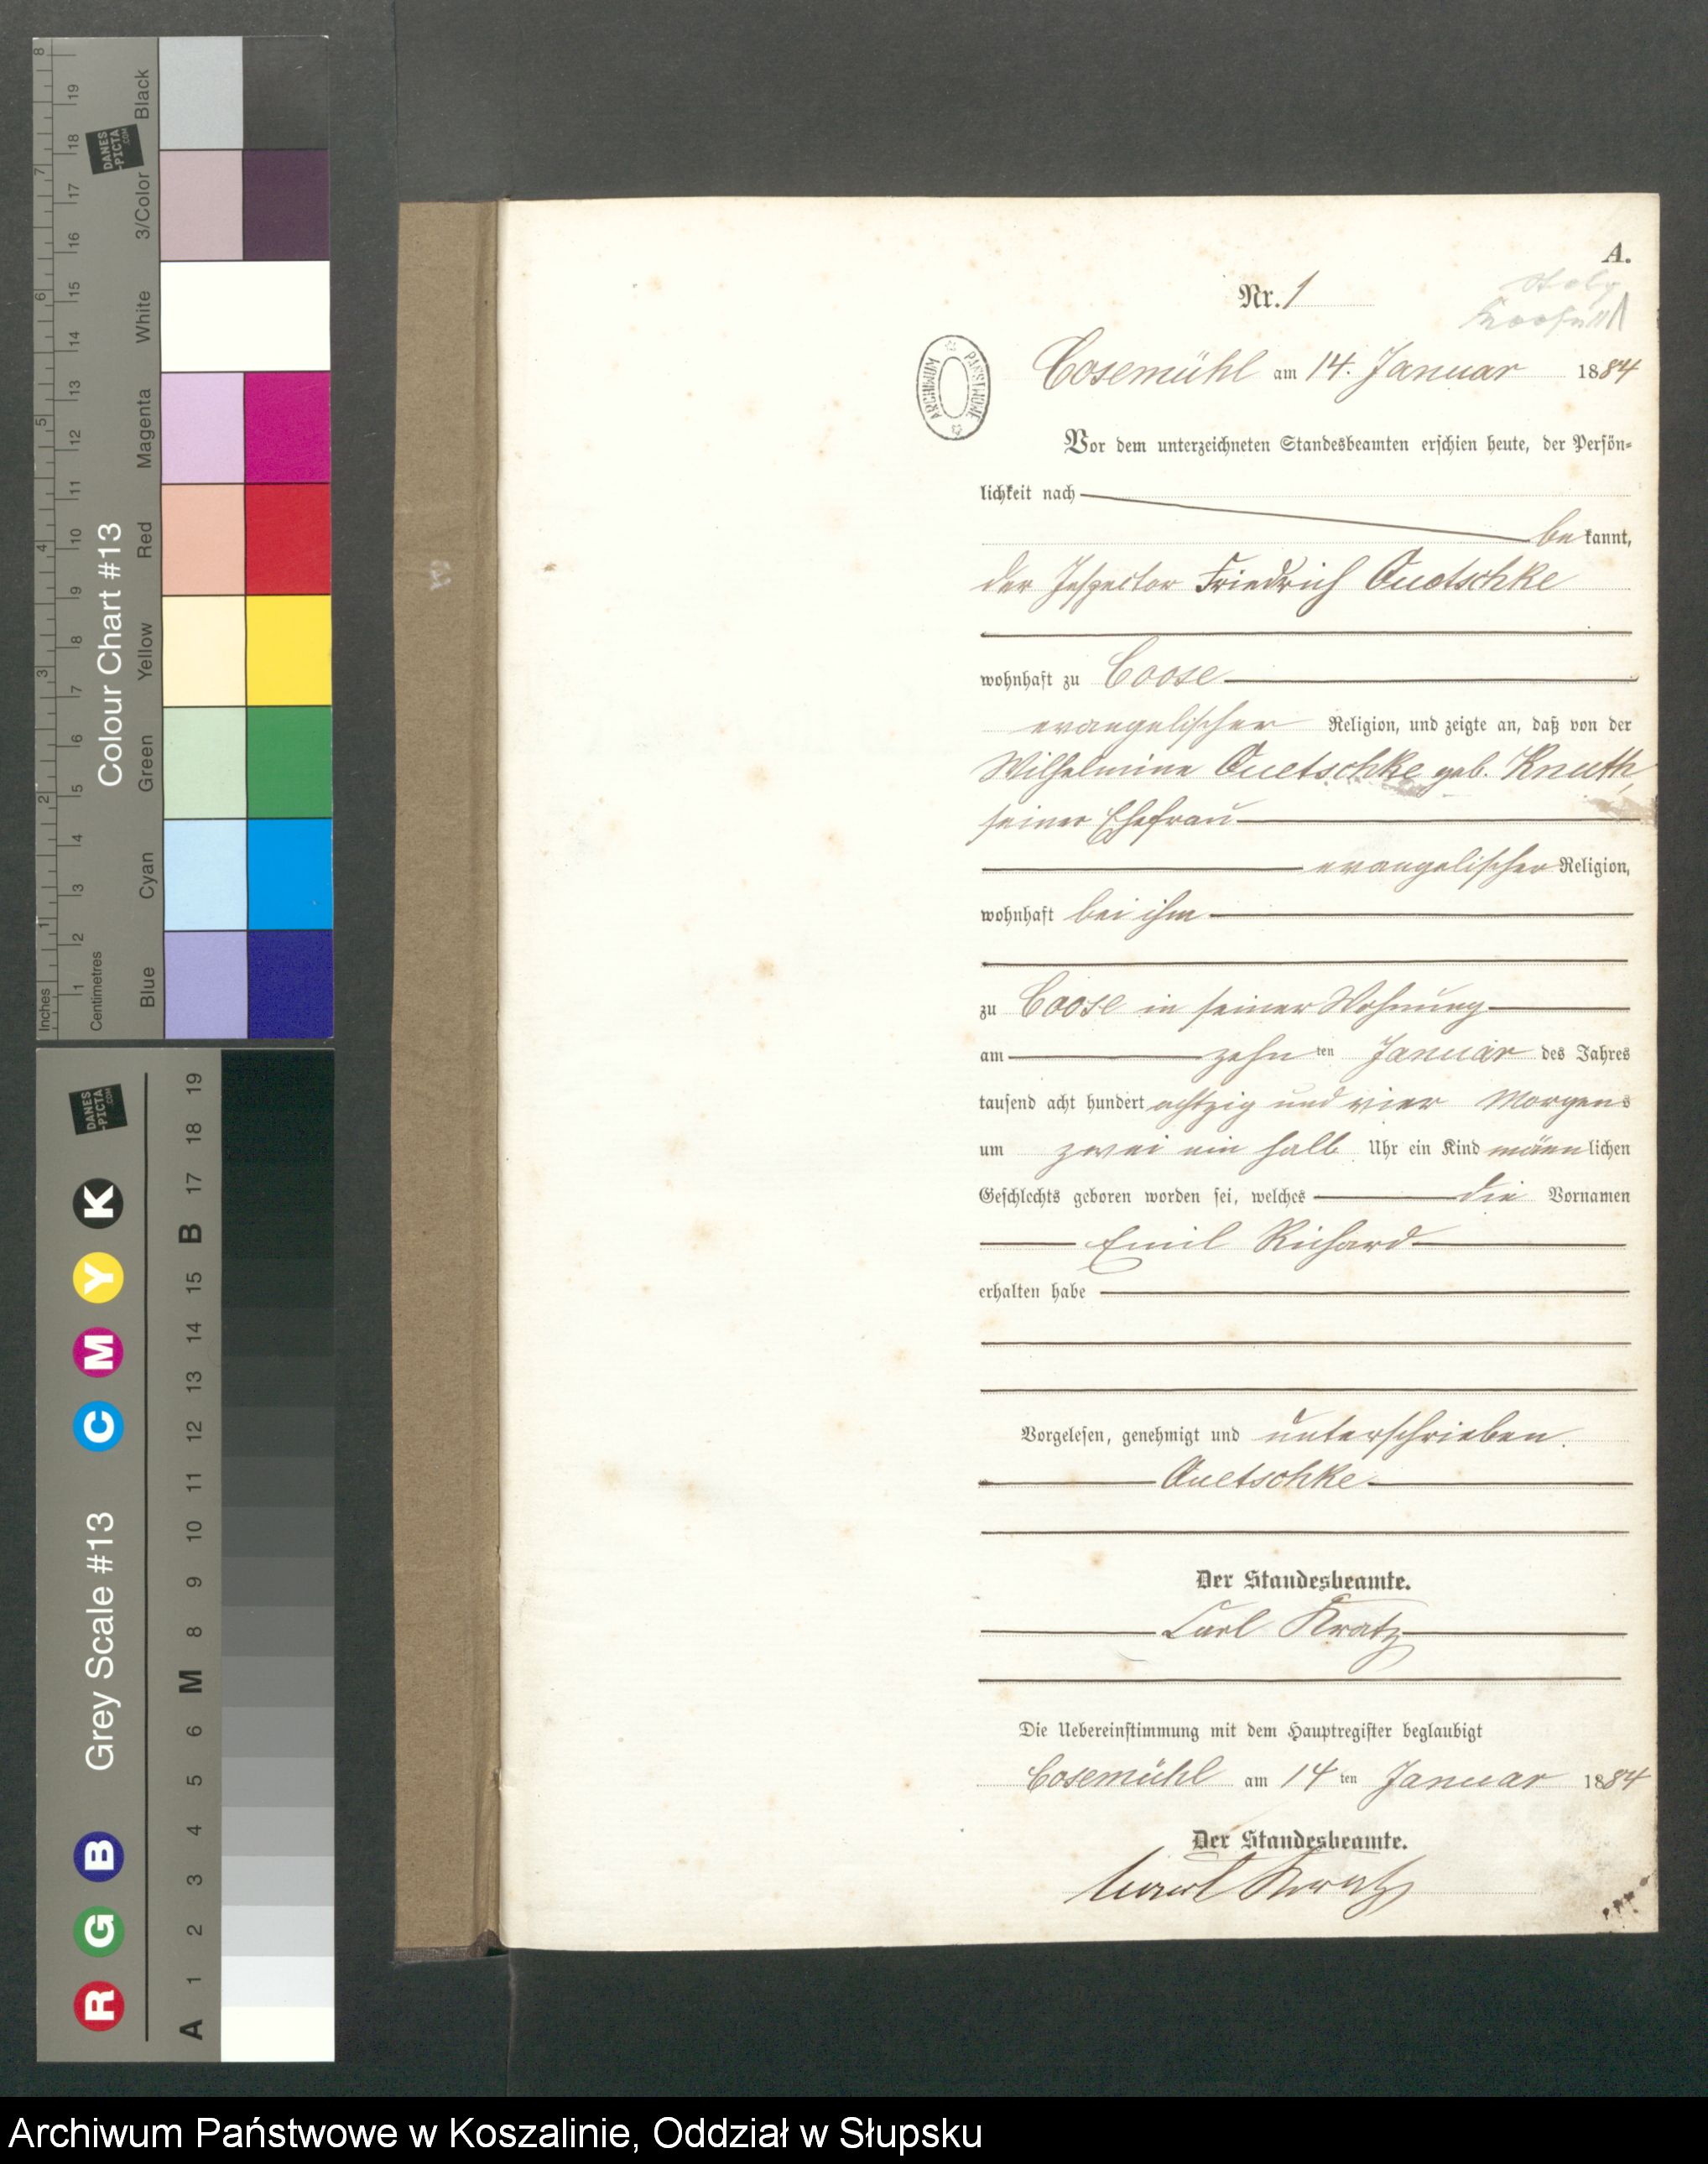 A.
Nr. 1
Cosemühl am 14. Januar 1884
Vor dem unterzeichneten Standesbeamten erschien heute, der Persön-
lichkeit nach
bekannt,
der Inspector Friedrich Quetschke
wohnhaft zu Coose
evangelischer Religion, und zeigte an, daß von der
Wilhelmine Quetschke geb. Knuth,
seiner Ehefrau
evangelischer Religion,
wohnhaft bei ihm
zu Coose in seiner Wohnung
am zehn ten Januar des Jahres
tausend acht hundert achtzig und vier Morgens
um zwei ein halb Uhr ein Kind männlichen
Geschlechts geboren worden sei, welches die Vornamen
Emil Richard
erhalten habe
Vorgelesen, genehmigt und unterschrieben.
Quetschke
Der Standesbeamte.
Carl Kratz
Die Uebereinstimmung mit dem Hauptregister beglaubigt
Cosemühl am 14 ten Januar 1884
Der Standesbeamte.
Carl Kratz
ARCHIWUM PAŃSTWOWE
Colour Chart #13
Black
3/Color
White
Magenta
Red
Yellow
Green
Cyan
Blue
Inches
1 2 3 4 5 6 7 8
Centimetres
1 2 3 4 5 6 7 8 9 10 11 12 13 14 15 16 17 18 19
DANES
-PICTA
.COM
Grey Scale #13
R G B C M Y K
A 1 2 3 4 5 6 M 8 9 10 11 12 13 14 15 B 17 18 19
DANES
-PICTA
.COM
Archiwum Państwowe w Koszalinie, Oddział w Słupsku